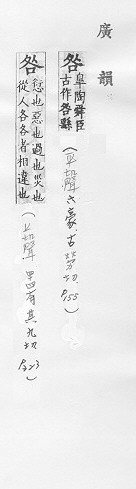 廣韻
咎 皐陶舜臣古作咎繇 (平聲六豪古勞切 P.155)
咎 愆也惡也過也災也從人各各者相違也 (上聲 四十四有其九切 P.323)